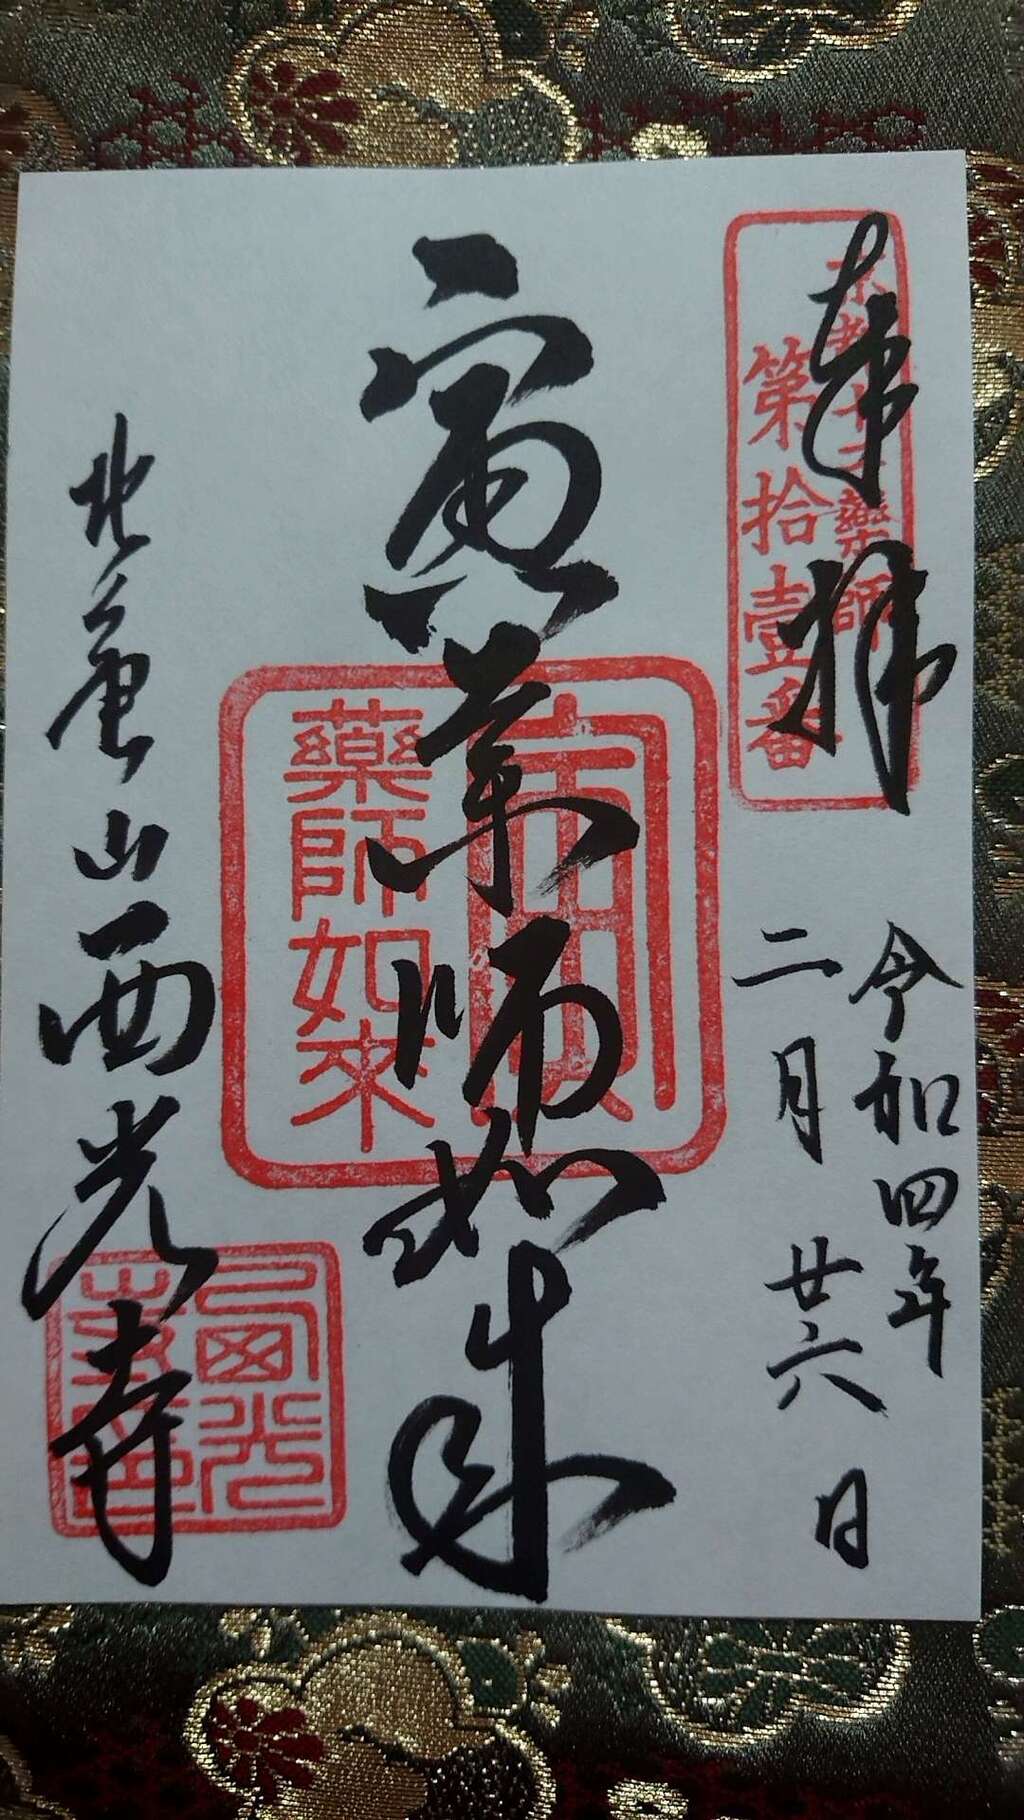 奉拝
京都十二薬師
第拾壹番
令和四年
二月廿六日
寅薬師如来
寅
藥師如來
山西光寺
西光